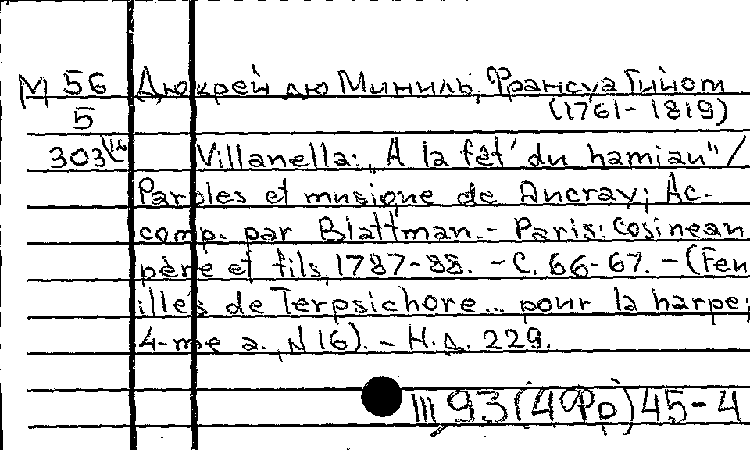 М 56 Дюкрей дю Миниль, Франсуа Гийом
5 (1761-1819)
303 Villanella: „A la fêt' du hamian"/
Paroles et musique de Ducray; Ac-
comp. par Blattman.- Paris: Cosinean
père et fils, 1787-88. - C. 66-67. - (Feu
illes de Terpsichore... pour la harpe;
4-me a., N 16). - Н.д. 229.
Ш 93(4Фр)45-4